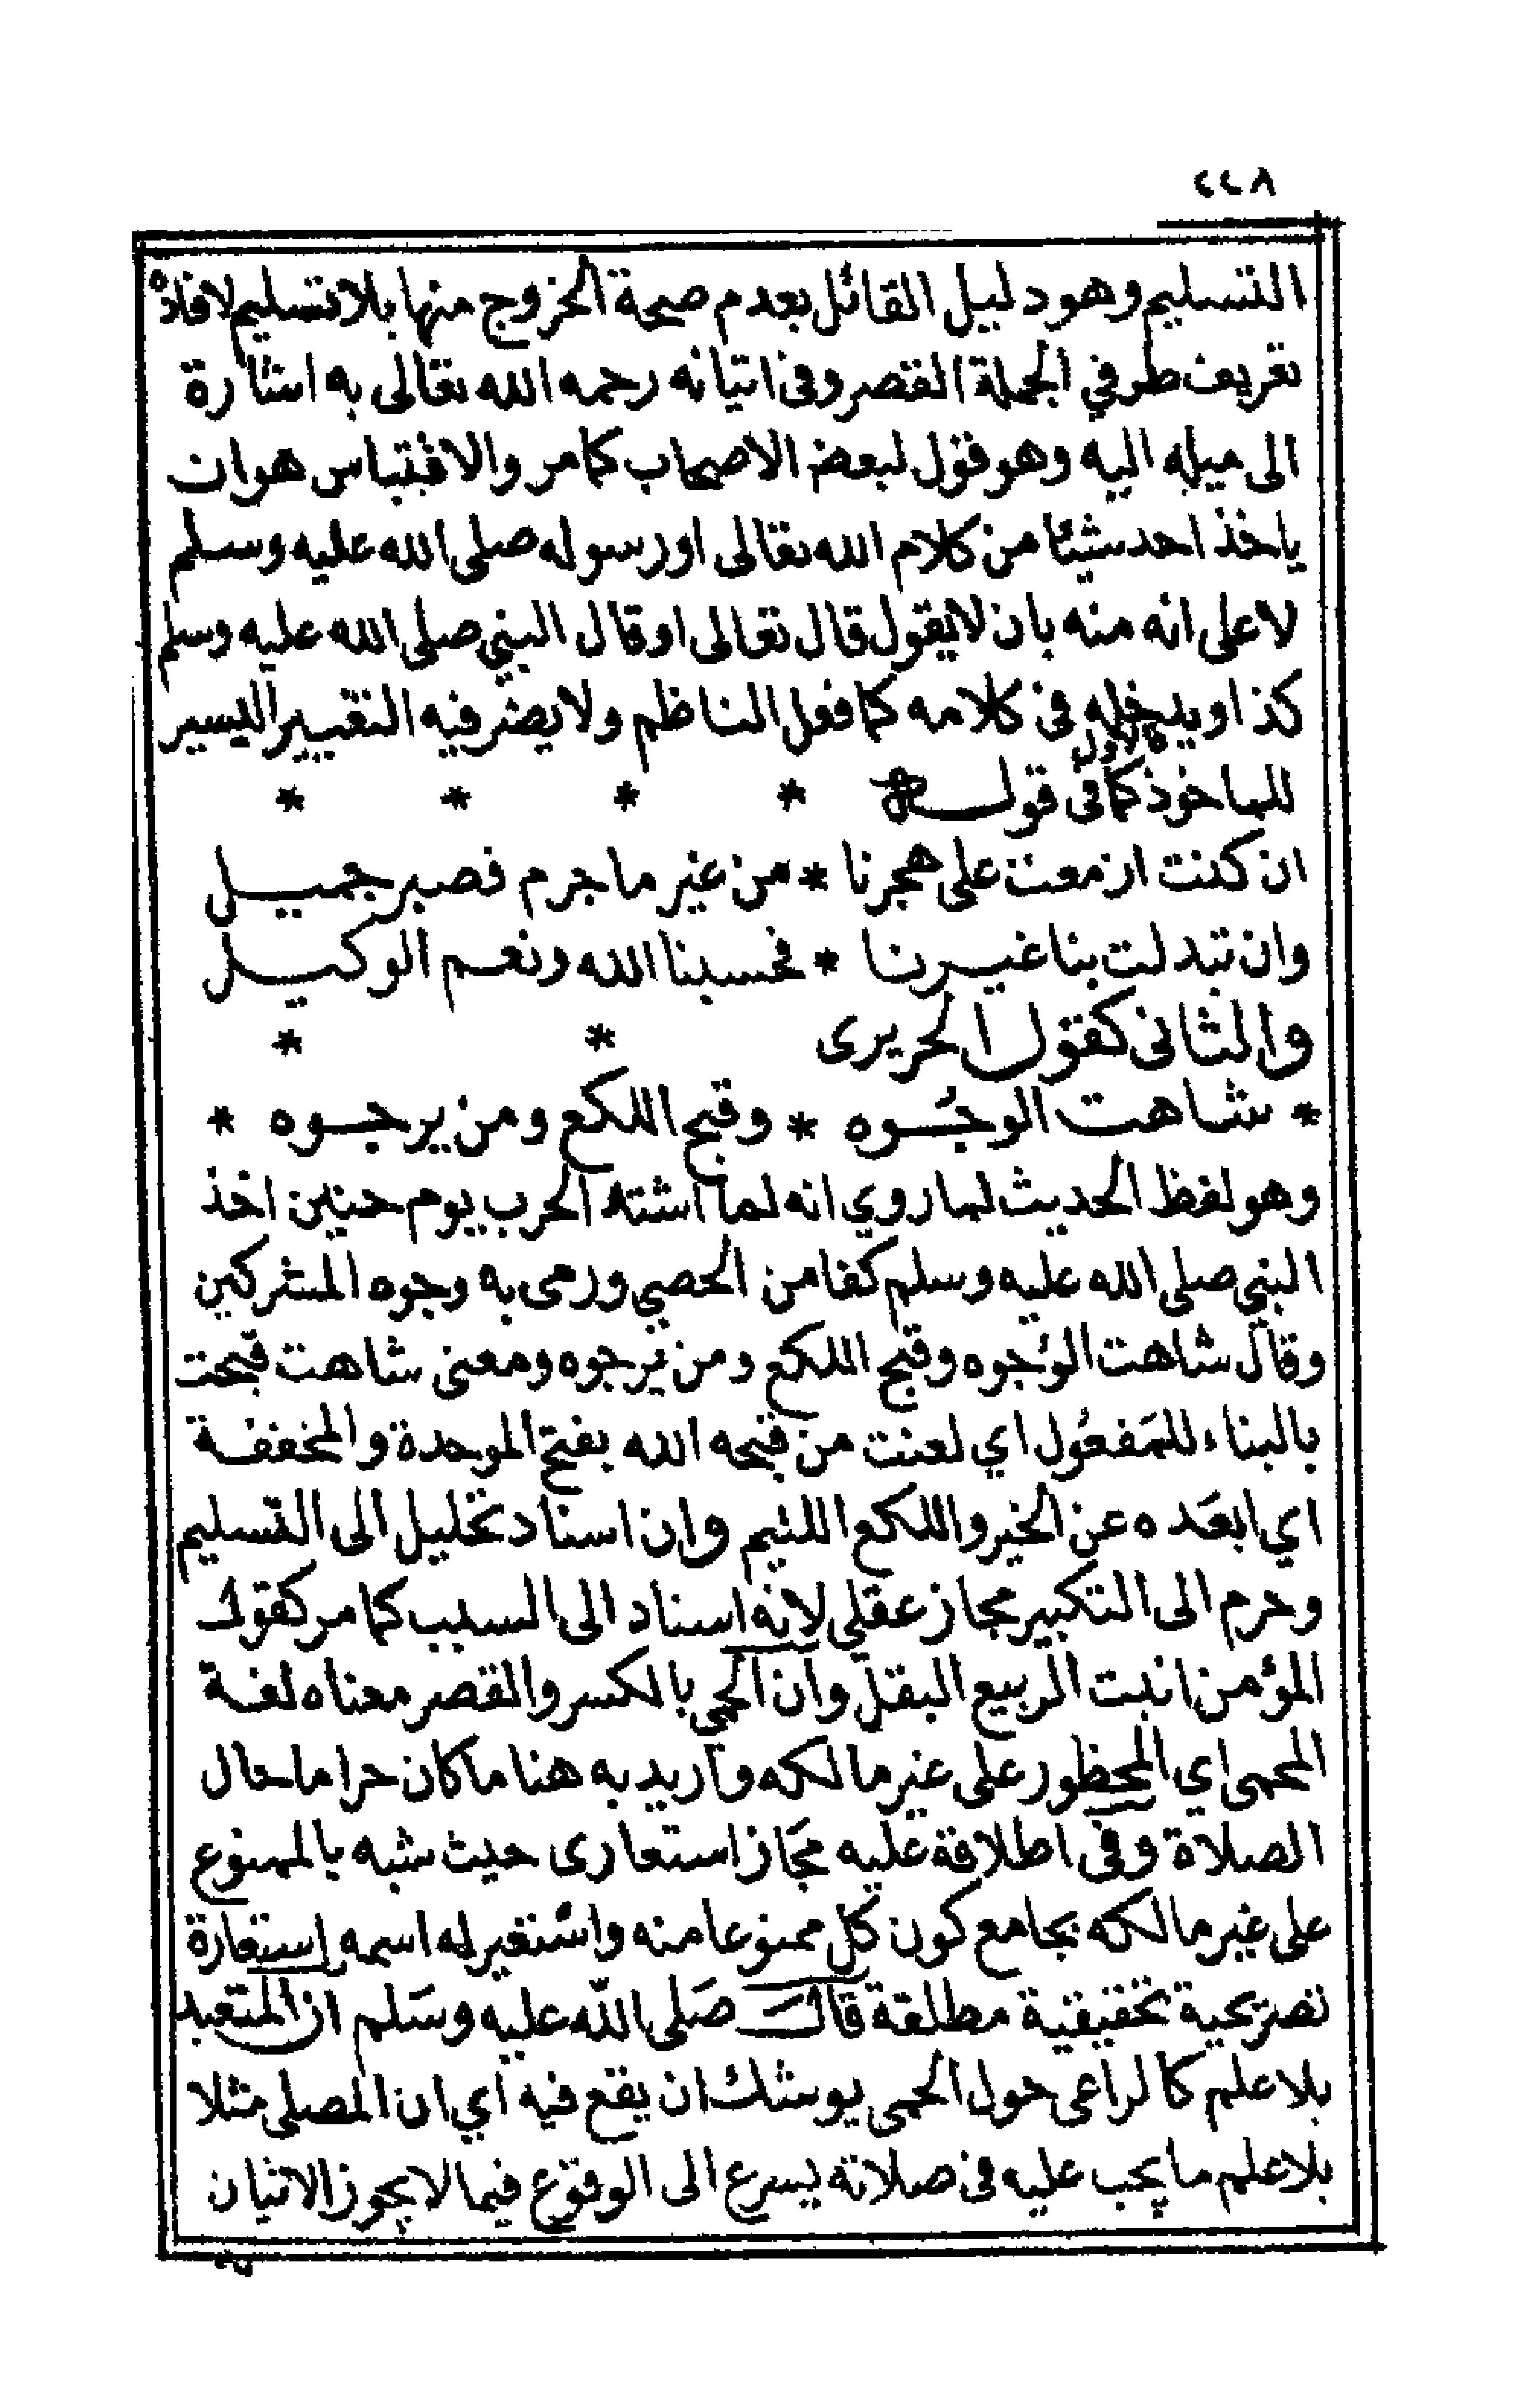 ٢٢٨
التسليم وهو دليل القائل بعدم صحة الخروج منها بلا تسليم لافادة
تعريف طرفي الجملة القصر وفى اتيانه رحمه الله تعالى به اشارة
الى ميله اليه وهو قول لبعض الاصحاب كما مر والاقتباس هو ان
ياخذ احد شيئا من كلام الله تعالى او رسوله صلى الله عليه وسلم
لا على انه منه بان لا يقول قال تعالى او قال النبي صلى الله عليه وسلم
كذا ويدخله فى كلامه كما فعل الناظم ولا يضر فيه التغيير اليسير
للماخوذ فالاول كما فى قوله * * * *
ان كنت ازمعت على هجرنا * من غير ما جرم فصبر جميل
وان تبدلت بنا غيرنا * فحسبنا الله ونعم الوكيل
والثانى كقول الحريرى * *
* شاهت الوجُوه * وقبح اللكع ومن يرجوه *
وهو لفظ الحديث لما روي انه لما اشتد الحرب يوم حنين اخذ
النبي صلى الله عليه وسلم كفا من الحصي ورمى به وجوه المشركين
وقال شاهت الوُجوه وقبح اللكع ومن يرجوه ومعنى شاهت قبحت
بالبناء للمَفعُول اي لعنت من قبحه الله بفتح الموحدة والمخففة
اي ابعَده عن الخير واللكع اللئيم وان اسناد تحليل الى التسليم
وحرم الى التكبير مجاز عقلي لانه اسناد الى السبب كما مر كقول
المؤمن انبت الربيع البقل وان الحمي بالكسر والقصر معناه لغة
المحمى اي المحظور على غير مالكه واريد به هنا ما كان حراما حال
الصلاة وفى اطلاقه عليه مجَاز استعارى حيث شبه بالممنوع
على غير مالكه بجامع كون كل ممنوعا منه واسْتعير له اسمه استعارة
تصريحية تحقيقية مطلقة قال صَلى اللّه عليه وسَلم ان المتعبد
بلا علم كالراعى حول الحمى يوشك ان يقع فيه اي ان المصلى مثلا
بلا علم ما يجب عليه فى صلاته يسرع الى الوقوع فيما لا يجوز الاتيان